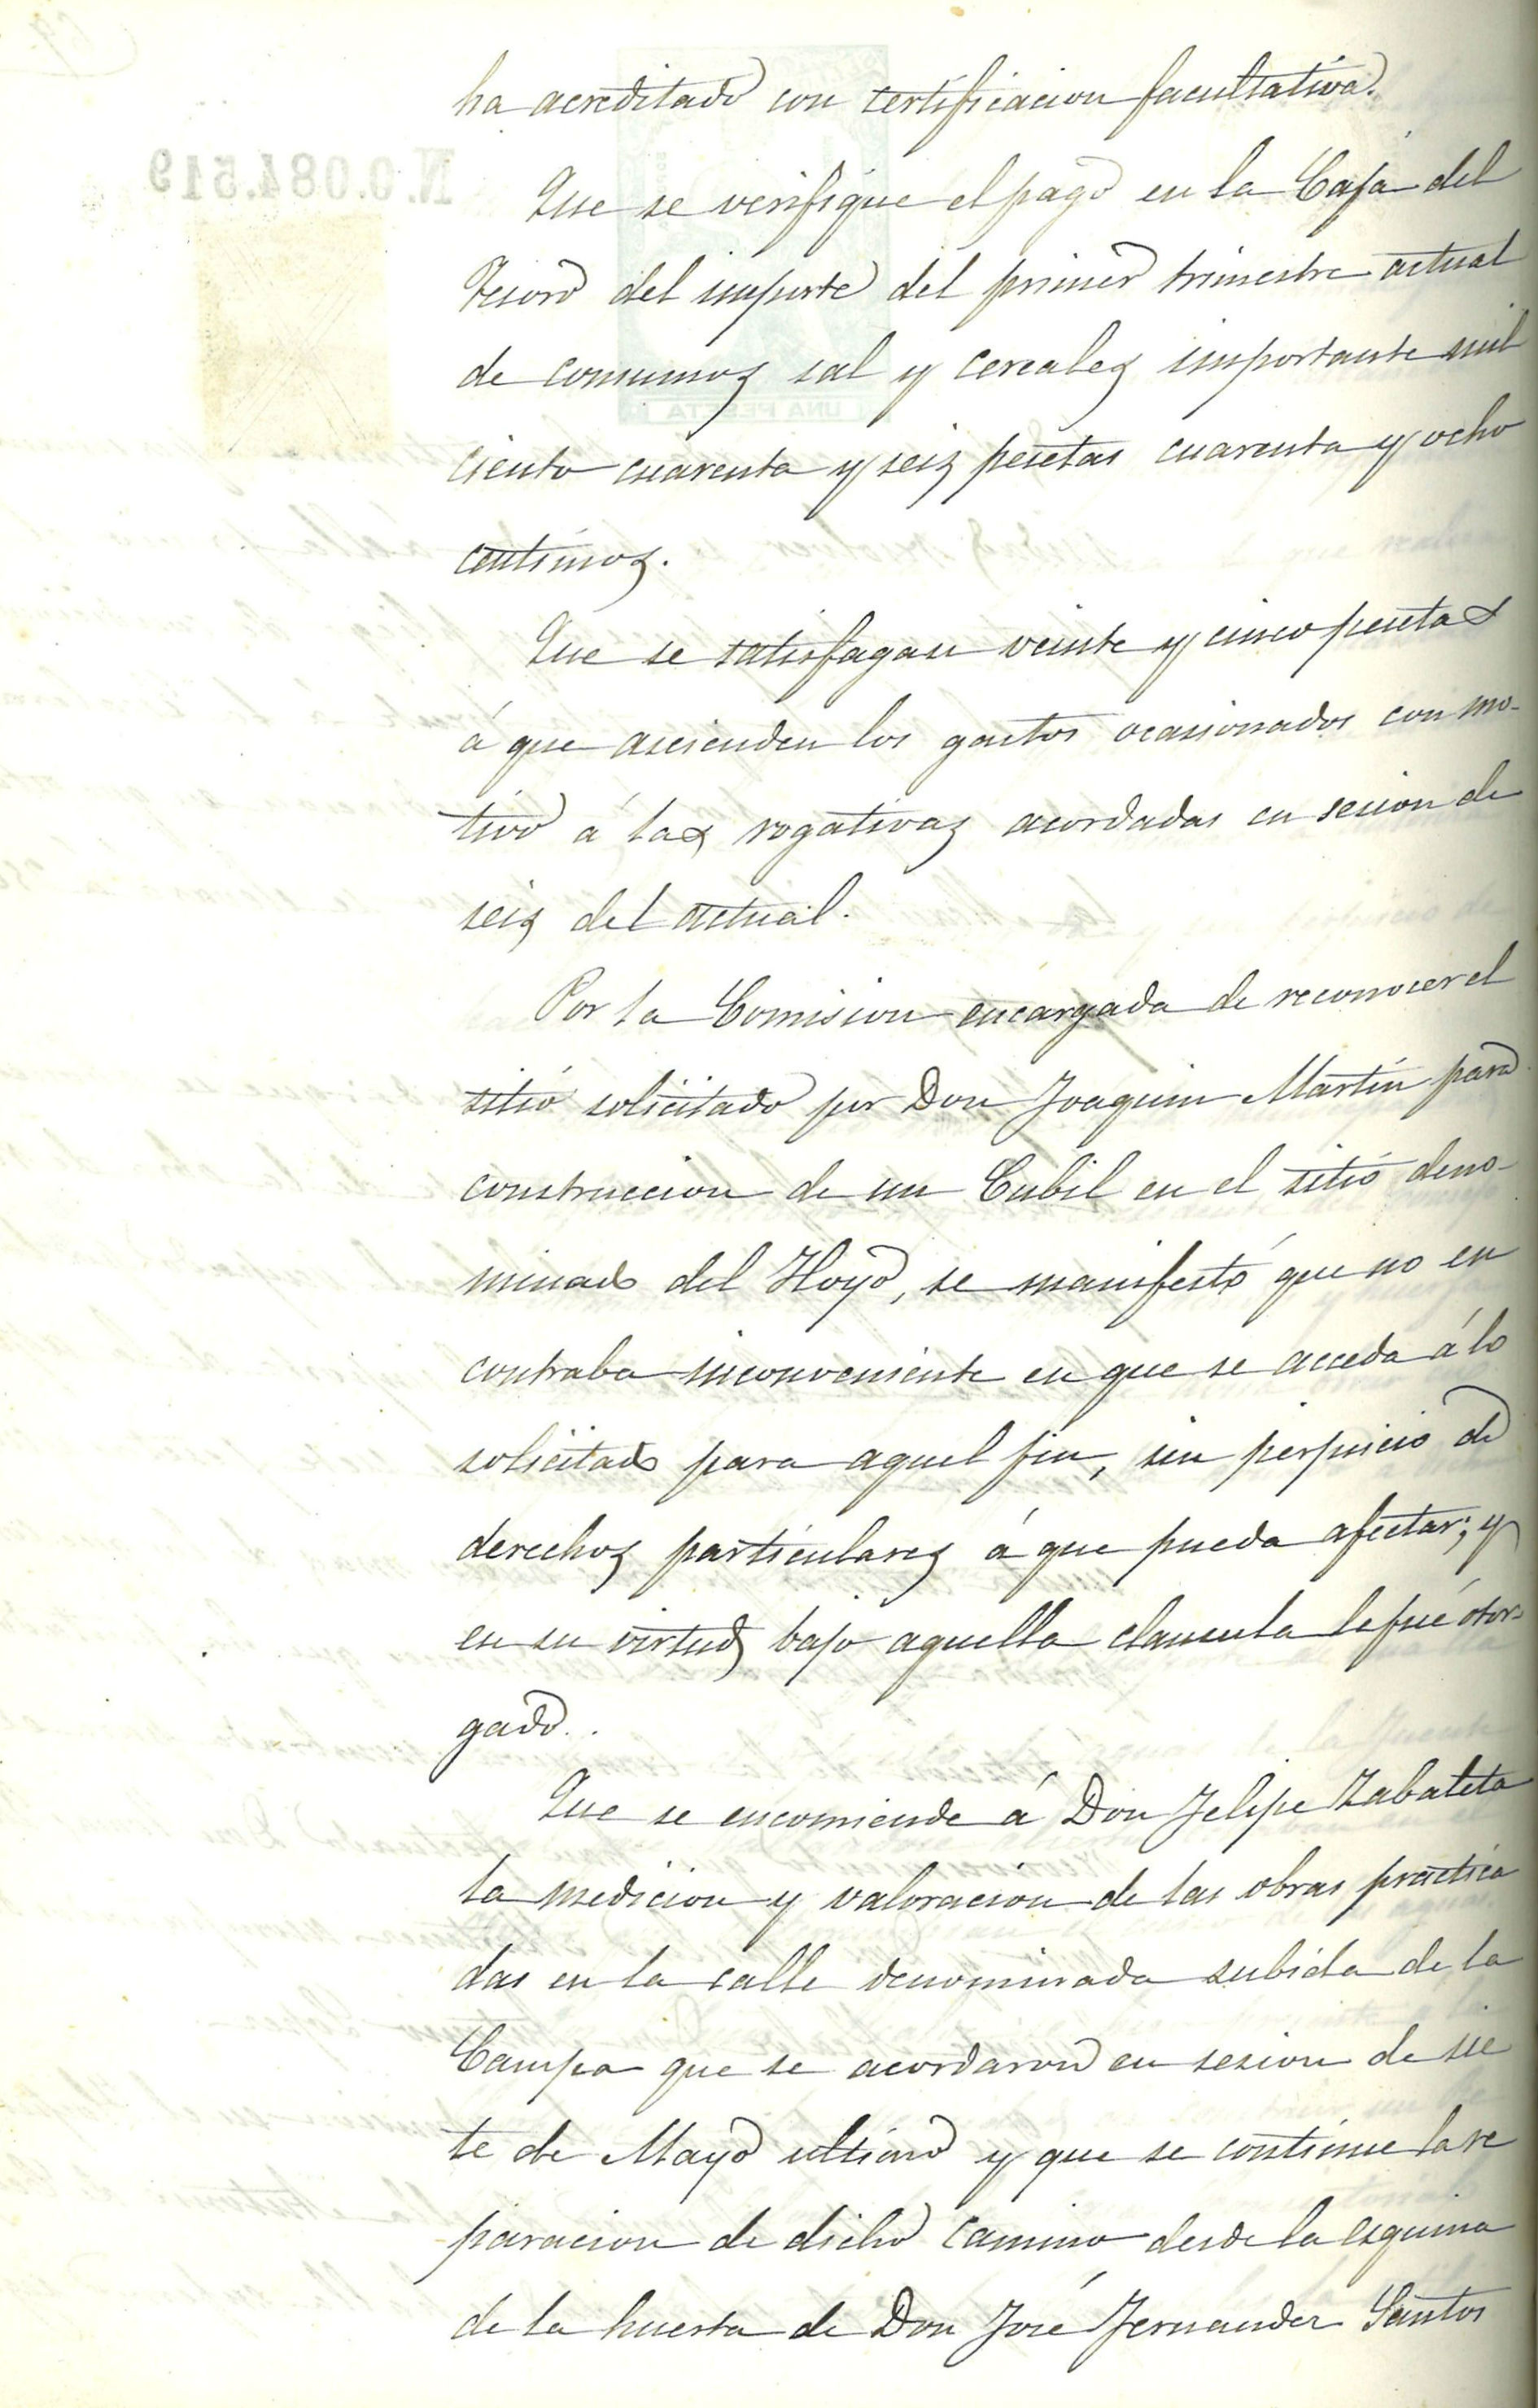 ha acreditado con certificacion facultativa.
Que se verifique el pago en la Caja del
Tesoro del importe del primer trimestre actual
de consumos sal y cereales importante mil
ciento cuarenta y seis pesetas cuarenta y ocho
centimos.
Que se satisfagan veinte y cinco pesetas
á que ascienden los gastos ocasionados con mo-
tivo á las rogativas acordadas en sesion de
seis del actual.
Por la Comision encargada de reconocer el
sitio solicitado por Don Joaquin Martin para
construccion de un Cubil en el sitio deno-
minado del Hoyo, se manifestó que no en
contraba inconveniente en que se acceda á lo
solicitado para aquel fin, sin perjuicio de
derechos particulares á que pueda afectar; y
en su virtud bajo aquella clausula le fué otor-
gado.
Que se encomiende á Don Felipe Zabaleta
la medicion y valoracion de las obras practica
das en la calle denominada subida de la
Campa que se acordaron en sesion de sie
te de Mayo ultimo y que se continue la re
paracion de dicho camino desde la esquina
de la huerta de Don José Fernandez Santos
N.0.084.519
UNA PESETA